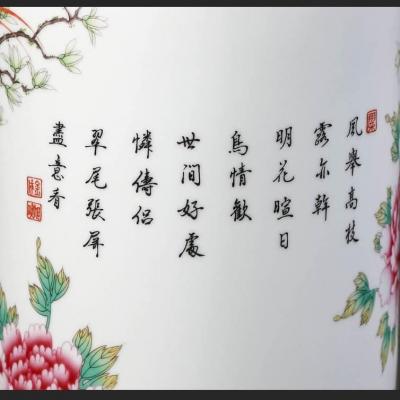 風舉高枝
露亦幹
明花暄日
鳥情歡
世間好處
憐儔侶
翠尾張屏
盡意看